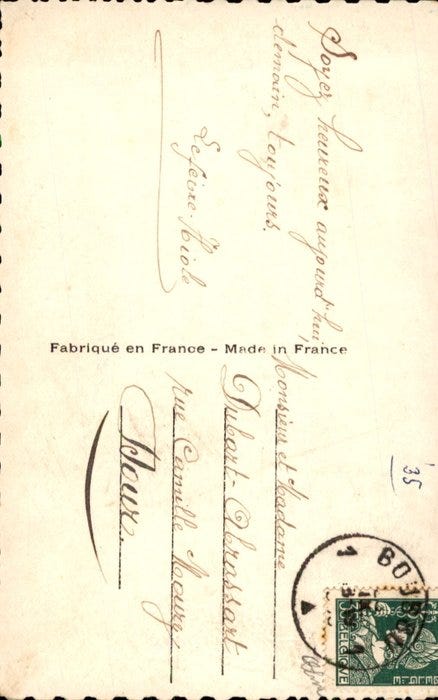 Soyez heureux aujourd'hui,
demain, toujours.
Lefèvre-Miole
Fabriqué en France - Made in France
Monsieur et Madame
Dubart-Abrassart
rue Camille Moury
Hour
'35
1
BOUSSU
BELGIQUE
BELGIE